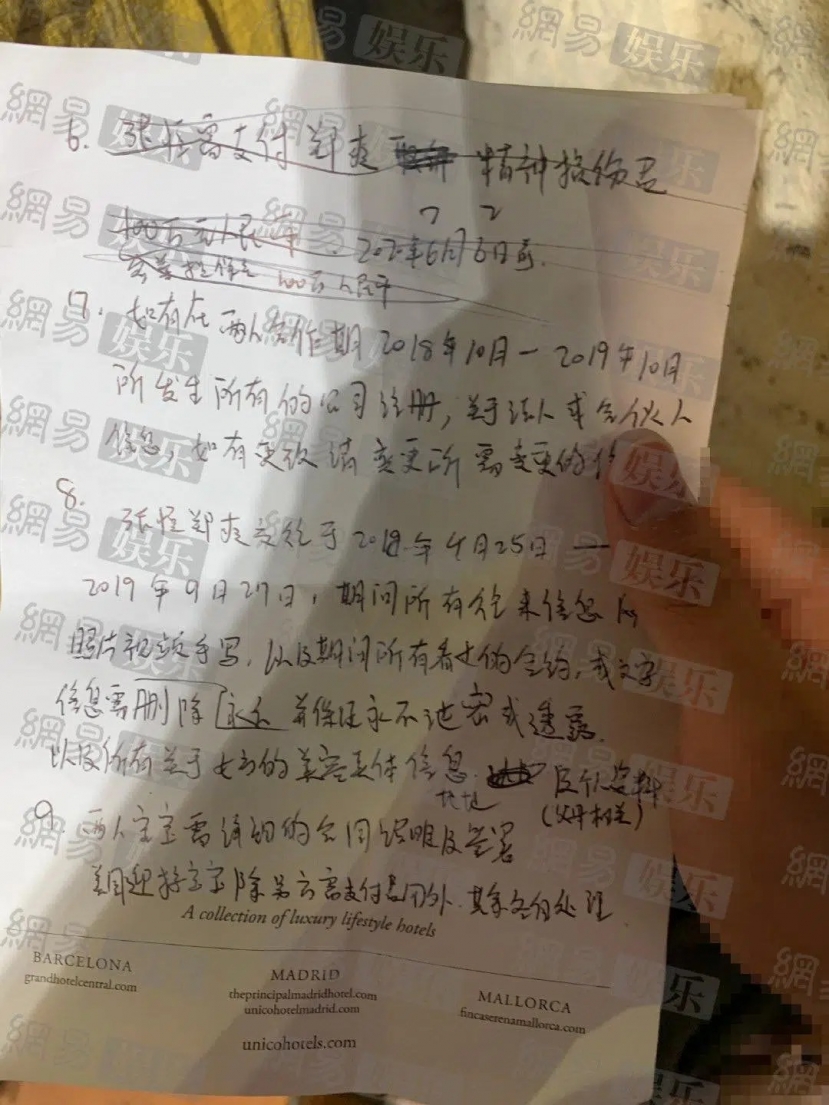 6. 张恒需支付郑爽 精神损伤君
100万元人民币. 2020年6月6日前.
7 2
100万人民币
7. 如有在两人合作期2018年10月一2019年10月
所发生所有的公司注册,关于法人或合伙人
信息,如有更改请变更所需变更的
8.
张恒郑爽交往于2018年4月25日一
2019年9月27日,期间所有往来信息及
照片视频手写,以及期间所有看过的合约,或文字
信息需删除[永久 并保证永不泄密或透露.
以及所有关于女方的美容身体信息. 及个人资料
地址 (父母相关)
9. 两人宝宝需详细的合同证明及签署
美国迎接宝宝除男方需支付费用外.其余各自处理
A collection of luxury lifestyle hotels
BARCELONA
grandhotelcentral.com
MADRID
theprincipalmadridhotel.com
unicohotelmadrid.com
MALLORCA
fincaserenamallorca.com
unicohotels.com
網易 娱乐